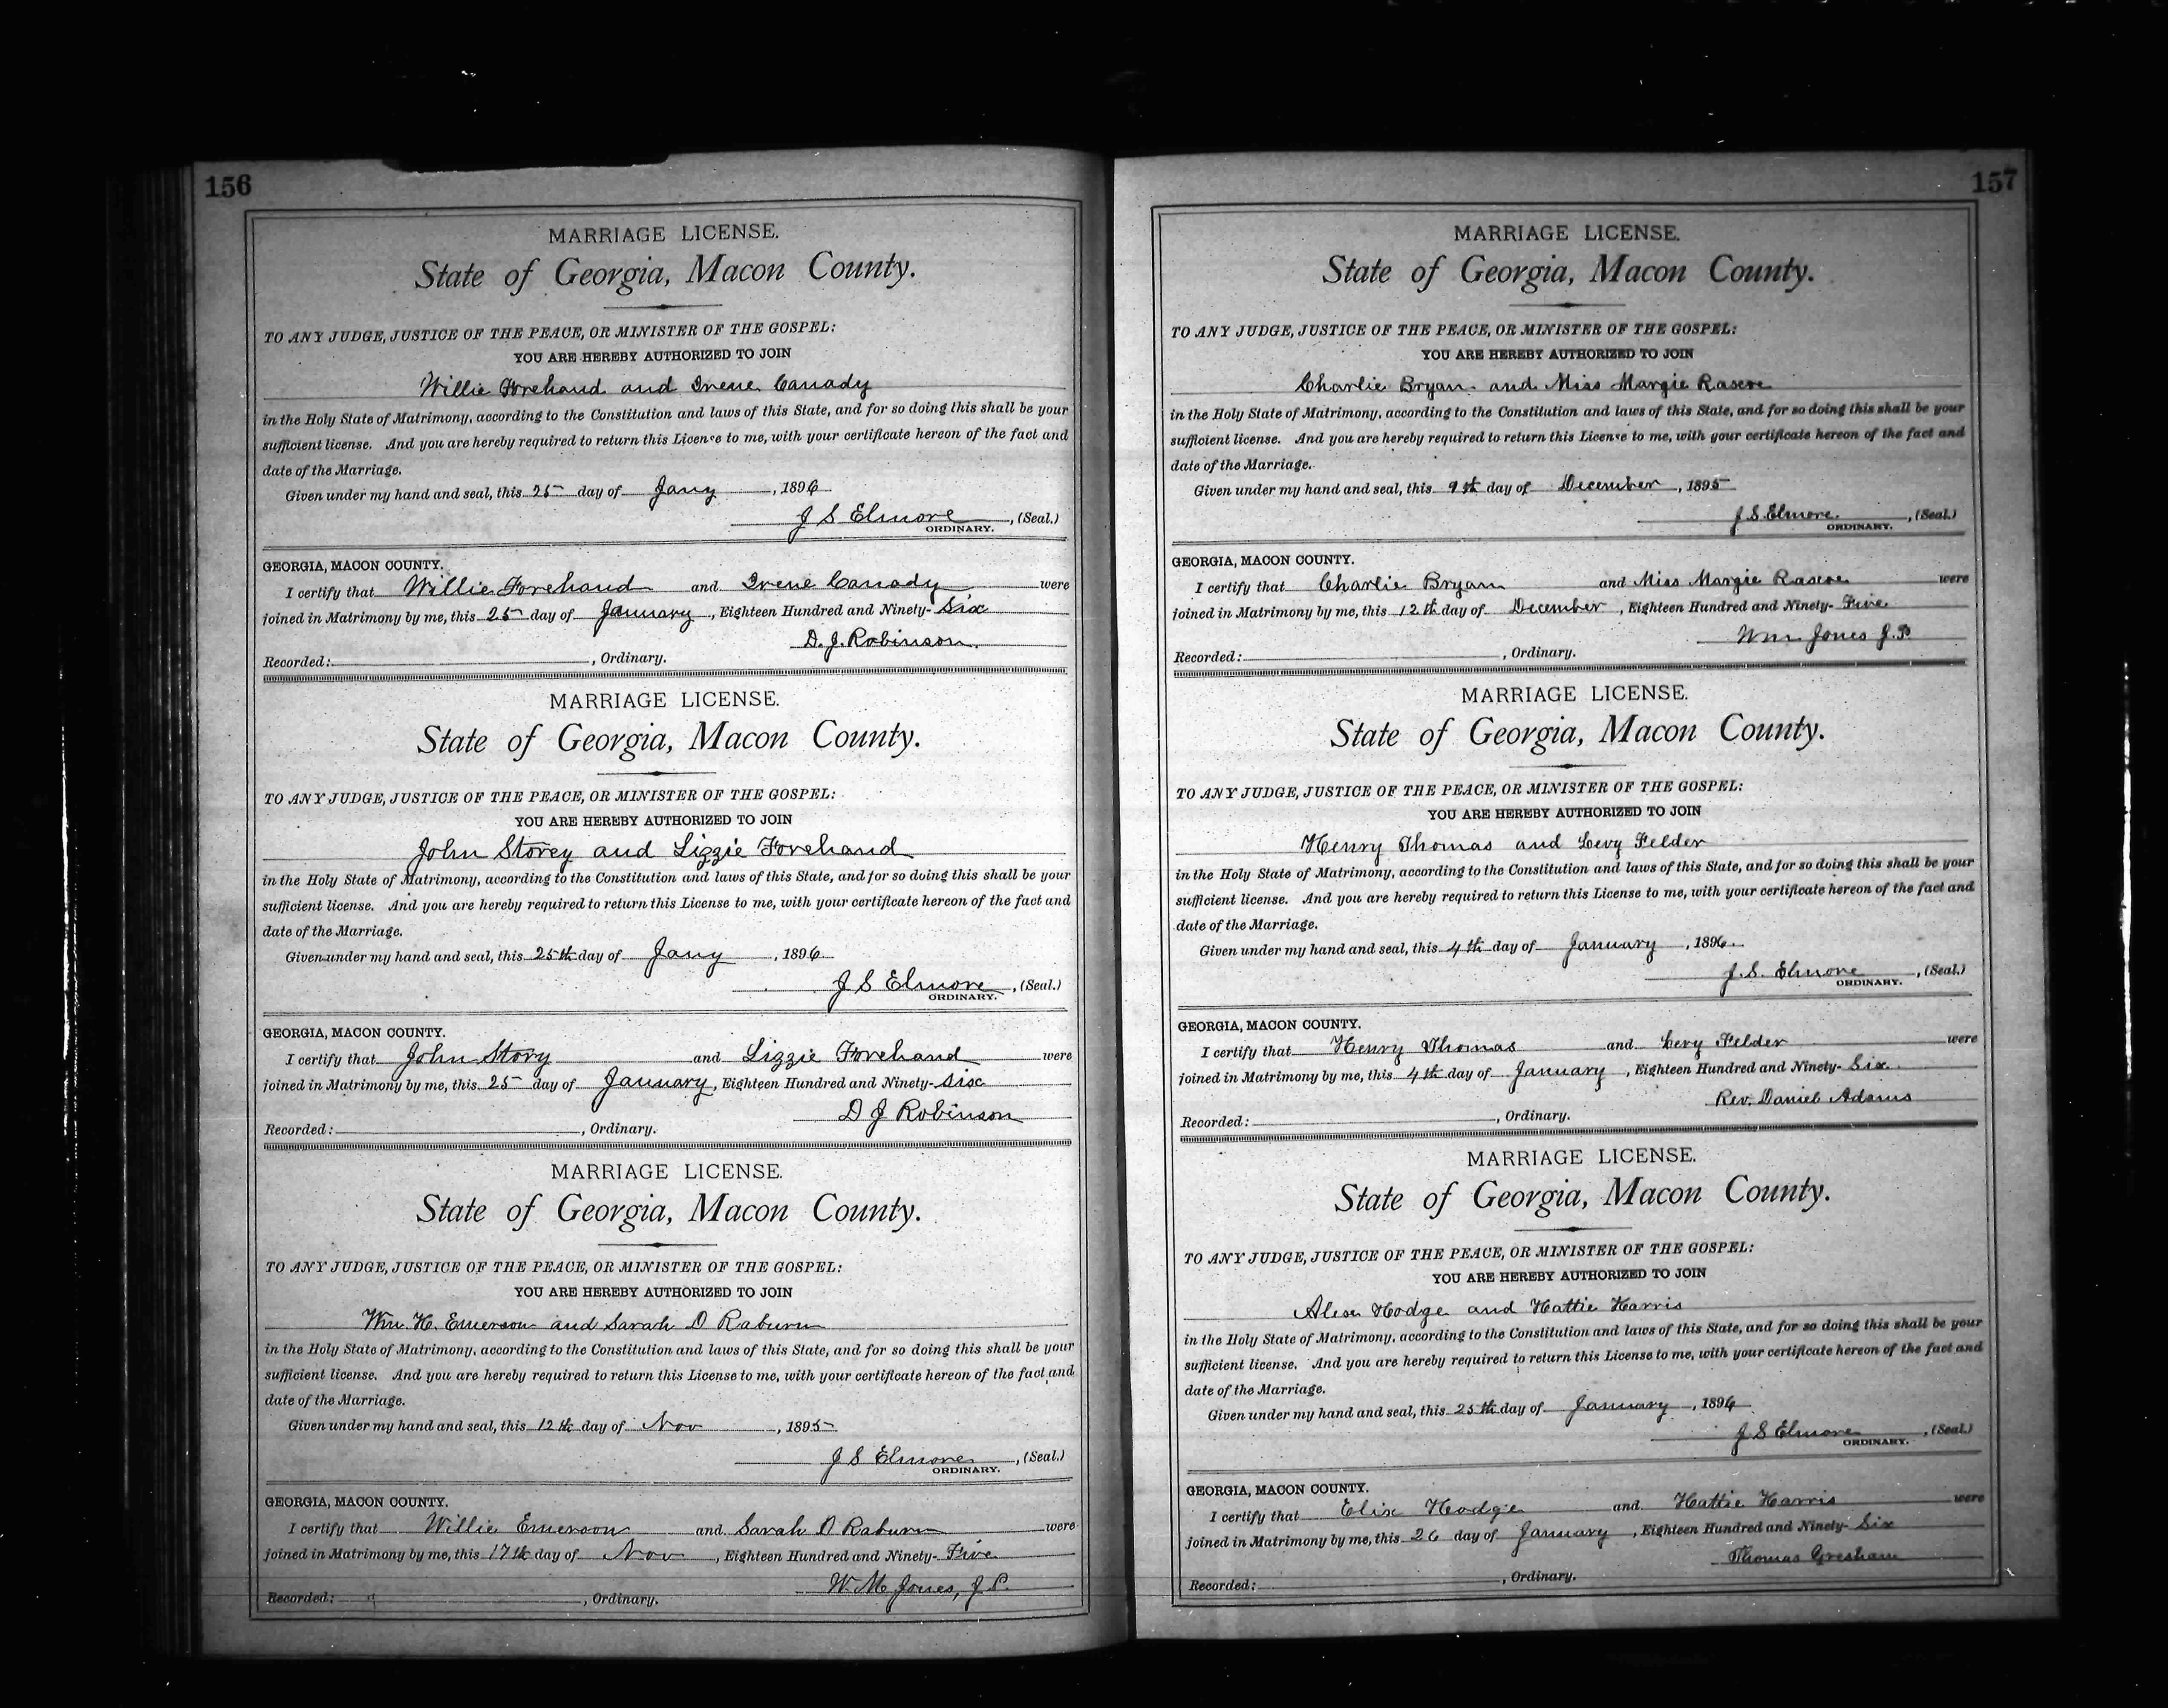 156
MARRIAGE LICENSE.
State of Georgia, Macon County.
TO ANY JUDGE, JUSTICE OF THE PEACE, OR MINISTER OF THE GOSPEL:
YOU ARE HEREBY AUTHORIZED TO JOIN
Willie Forehand and Irene Canady
in the Holy State of Matrimony, according to the Constitution and laws of this State, and for so doing this shall be your
sufficient license. And you are hereby required to return this License to me, with your certificate hereon of the fact and
date of the Marriage.
Given under my hand and seal, this 25 day of Jany, 1896
J S Elmore, (Seal.)
ORDINARY.
GEORGIA, MACON COUNTY.
I certify that Willie Forehand and Irene Canady were
joined in Matrimony by me, this 25 day of January, Eighteen Hundred and Ninety-Six
D. J. Robinson.
Recorded: , Ordinary.
MARRIAGE LICENSE.
State of Georgia, Macon County.
TO ANY JUDGE, JUSTICE OF THE PEACE, OR MINISTER OF THE GOSPEL:
YOU ARE HEREBY AUTHORIZED TO JOIN
John Storey and Lizzie Forehand
in the Holy State of Matrimony, according to the Constitution and laws of this State, and for so doing this shall be your
sufficient license. And you are hereby required to return this License to me, with your certificate hereon of the fact and
date of the Marriage.
Given under my hand and seal, this 25th day of Jany, 1896
J S Elmore, (Seal.)
ORDINARY.
GEORGIA, MACON COUNTY.
I certify that John Story and Lizzie Forehand were
joined in Matrimony by me, this 25 day of January, Eighteen Hundred and Ninety-Six
D J Robinson
Recorded: , Ordinary.
MARRIAGE LICENSE.
State of Georgia, Macon County.
TO ANY JUDGE, JUSTICE OF THE PEACE, OR MINISTER OF THE GOSPEL:
YOU ARE HEREBY AUTHORIZED TO JOIN
Wm. H. Emerson and Sarah D Raburn
in the Holy State of Matrimony, according to the Constitution and laws of this State, and for so doing this shall be your
sufficient license. And you are hereby required to return this License to me, with your certificate hereon of the fact and
date of the Marriage.
Given under my hand and seal, this 12th day of Nov, 1895
J S Elmore, (Seal.)
ORDINARY.
GEORGIA, MACON COUNTY.
I certify that Willie Emerson and Sarah D Raburn were
joined in Matrimony by me, this 17th day of Nov, Eighteen Hundred and Ninety-Five
W. M. Jones, J. P.
Recorded: , Ordinary.
157
MARRIAGE LICENSE.
State of Georgia, Macon County.
TO ANY JUDGE, JUSTICE OF THE PEACE, OR MINISTER OF THE GOSPEL:
YOU ARE HEREBY AUTHORIZED TO JOIN
Charlie Bryan and Miss Margie Rascoe
in the Holy State of Matrimony, according to the Constitution and laws of this State, and for so doing this shall be your
sufficient license. And you are hereby required to return this License to me, with your certificate hereon of the fact and
date of the Marriage.
Given under my hand and seal, this 9th day of December, 1895
J. S. Elmore, (Seal.)
ORDINARY.
GEORGIA, MACON COUNTY.
I certify that Charlie Bryan and Miss Margie Rascoe were
joined in Matrimony by me, this 12th day of December, Eighteen Hundred and Ninety-Five
Wm. Jones J. P.
Recorded: , Ordinary.
MARRIAGE LICENSE.
State of Georgia, Macon County.
TO ANY JUDGE, JUSTICE OF THE PEACE, OR MINISTER OF THE GOSPEL:
YOU ARE HEREBY AUTHORIZED TO JOIN
Henry Thomas and Levy Felder
in the Holy State of Matrimony, according to the Constitution and laws of this State, and for so doing this shall be your
sufficient license. And you are hereby required to return this License to me, with your certificate hereon of the fact and
date of the Marriage.
Given under my hand and seal, this 4th day of January, 1896.
J. S. Elmore, (Seal.)
ORDINARY.
GEORGIA, MACON COUNTY.
I certify that Henry Thomas and Levy Felder were
joined in Matrimony by me, this 4th day of January, Eighteen Hundred and Ninety-Six.
Rev. Daniel Adams
Recorded: , Ordinary.
MARRIAGE LICENSE.
State of Georgia, Macon County.
TO ANY JUDGE, JUSTICE OF THE PEACE, OR MINISTER OF THE GOSPEL:
YOU ARE HEREBY AUTHORIZED TO JOIN
Alex Hodge and Hattie Harris
in the Holy State of Matrimony, according to the Constitution and laws of this State, and for so doing this shall be your
sufficient license. And you are hereby required to return this License to me, with your certificate hereon of the fact and
date of the Marriage.
Given under my hand and seal, this 25th day of January, 1896
J S Elmore, (Seal.)
ORDINARY.
GEORGIA, MACON COUNTY.
I certify that Elix Hodge and Hattie Harris were
joined in Matrimony by me, this 26 day of January, Eighteen Hundred and Ninety-Six
Thomas Gresham
Recorded: , Ordinary.